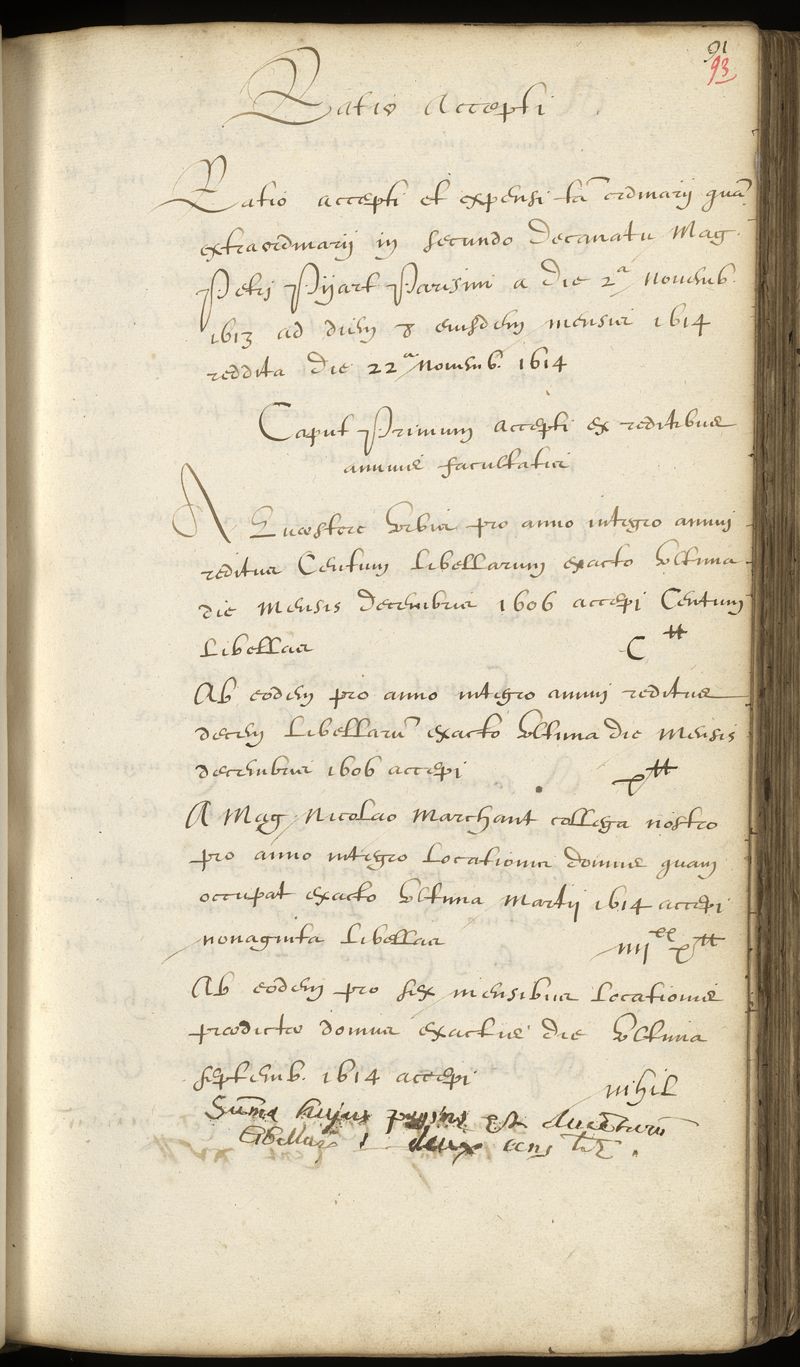 91
93
Ratio Accepti
Ratio accepti et expensi tā ordinarij quā
extraordinarij in secundo Decanatu Mag.
Petri Pijart Parisini a die 2ª Novemb.
1613 ad diem 8 eiusdem mensis 1614
reddita die 22ª Novemb. 1614
Caput Primum accepti ex reditibus
annuis facultatis
A Quæstore Urbis pro anno integro annui
reditus Centum libellarum exacto Ultima
die mensis decembris 1606 accepi Centum
Libellas C ₶
Ab eodem pro anno integro annui reditus
decem Libellarū exacto Ultima die mensis
decembris 1606 accepi x₶
A Mag Nicolao Marchant collega nostro
pro anno integro Locationis domus quam
occupat exacto Ultima Martij 1614 accepi
nonaginta libellas iiijˣˣ x₶
Ab eodem pro sex mensibus locationis
prædictæ domus exactis die Ultima
septemb. 1614 accepi nihil
Sum̄a hujus paginæ est ducētarū
libellarū deux cens